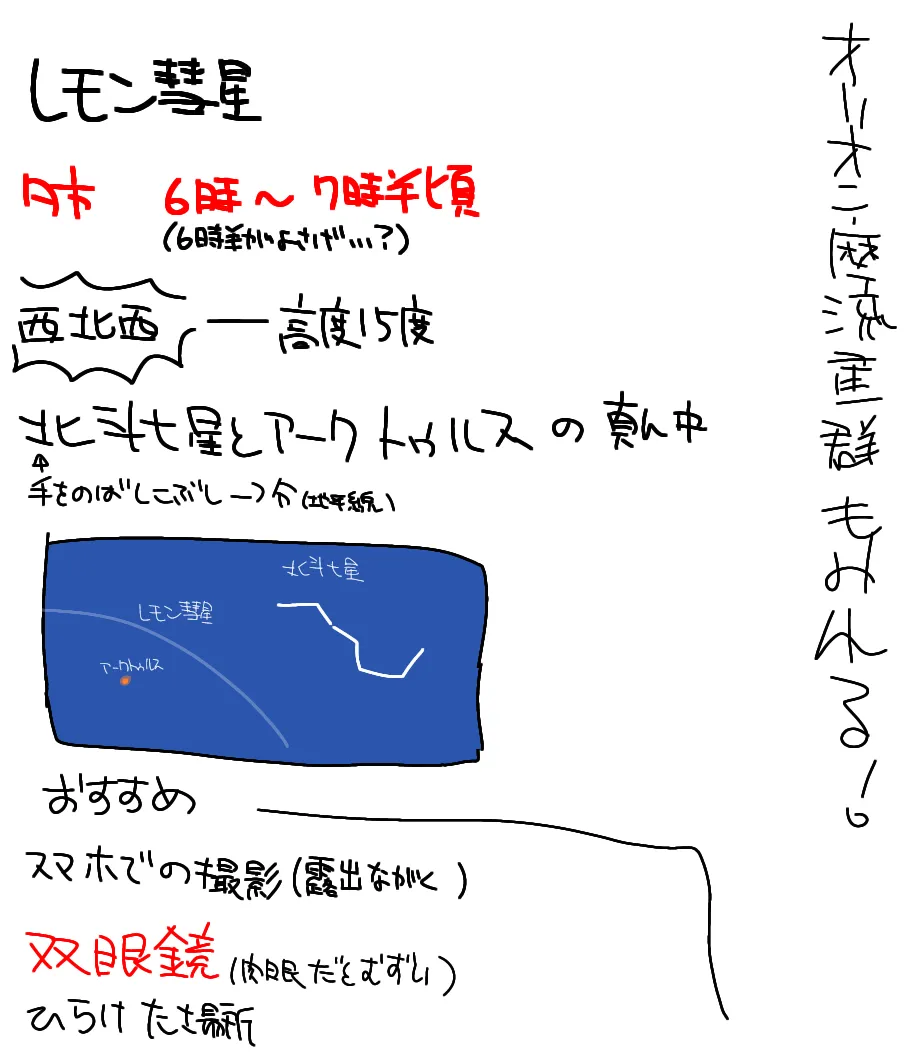 レモン彗星
夕方 6時～7時半頃
(6時半がよさげ...?)
西北西 ― 高度15度
北斗七星とアークトゥルスの真ん中
↑
手をのばしこぶし一つ分(地平線)
北斗七星
レモン彗星
アークトゥルス
おすすめ
スマホでの撮影(露出ながく)
双眼鏡(肉眼だとむずい)
ひらけた場所
オリオン座流星群もみれる!